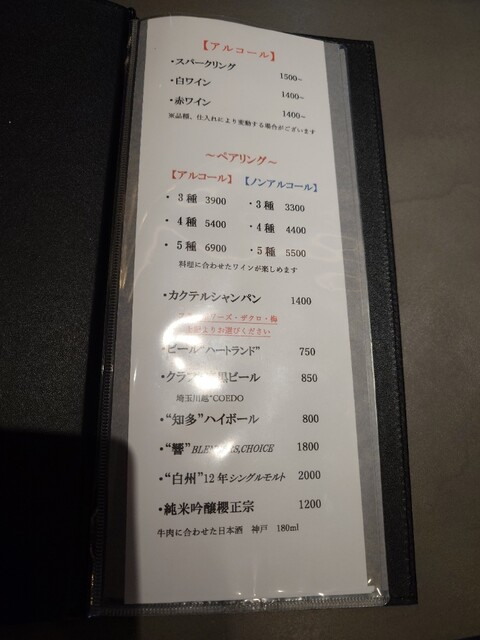 【アルコール】
・スパークリング 1500~
・白ワイン 1400~
・赤ワイン 1400~
※品種、仕入れにより変動する場合がございます
～ペアリング～
【アルコール】 【ノンアルコール】
・３種 3900 ・３種 3300
・４種 5400 ・４種 4400
・５種 6900 ・５種 5500
料理に合わせたワインが楽しめます
・カクテルシャンパン 1400
リーズ・ザクロ・梅
よりお選びください
・ビール"ハートランド" 750
・クラ 黒ビール 850
埼玉川越"COEDO
・"知多"ハイボール 800
・"響" CHOICE 1800
・"白州"12年シングルモルト 2000
・純米吟醸櫻正宗 1200
牛肉に合わせた日本酒 神戸 180ml